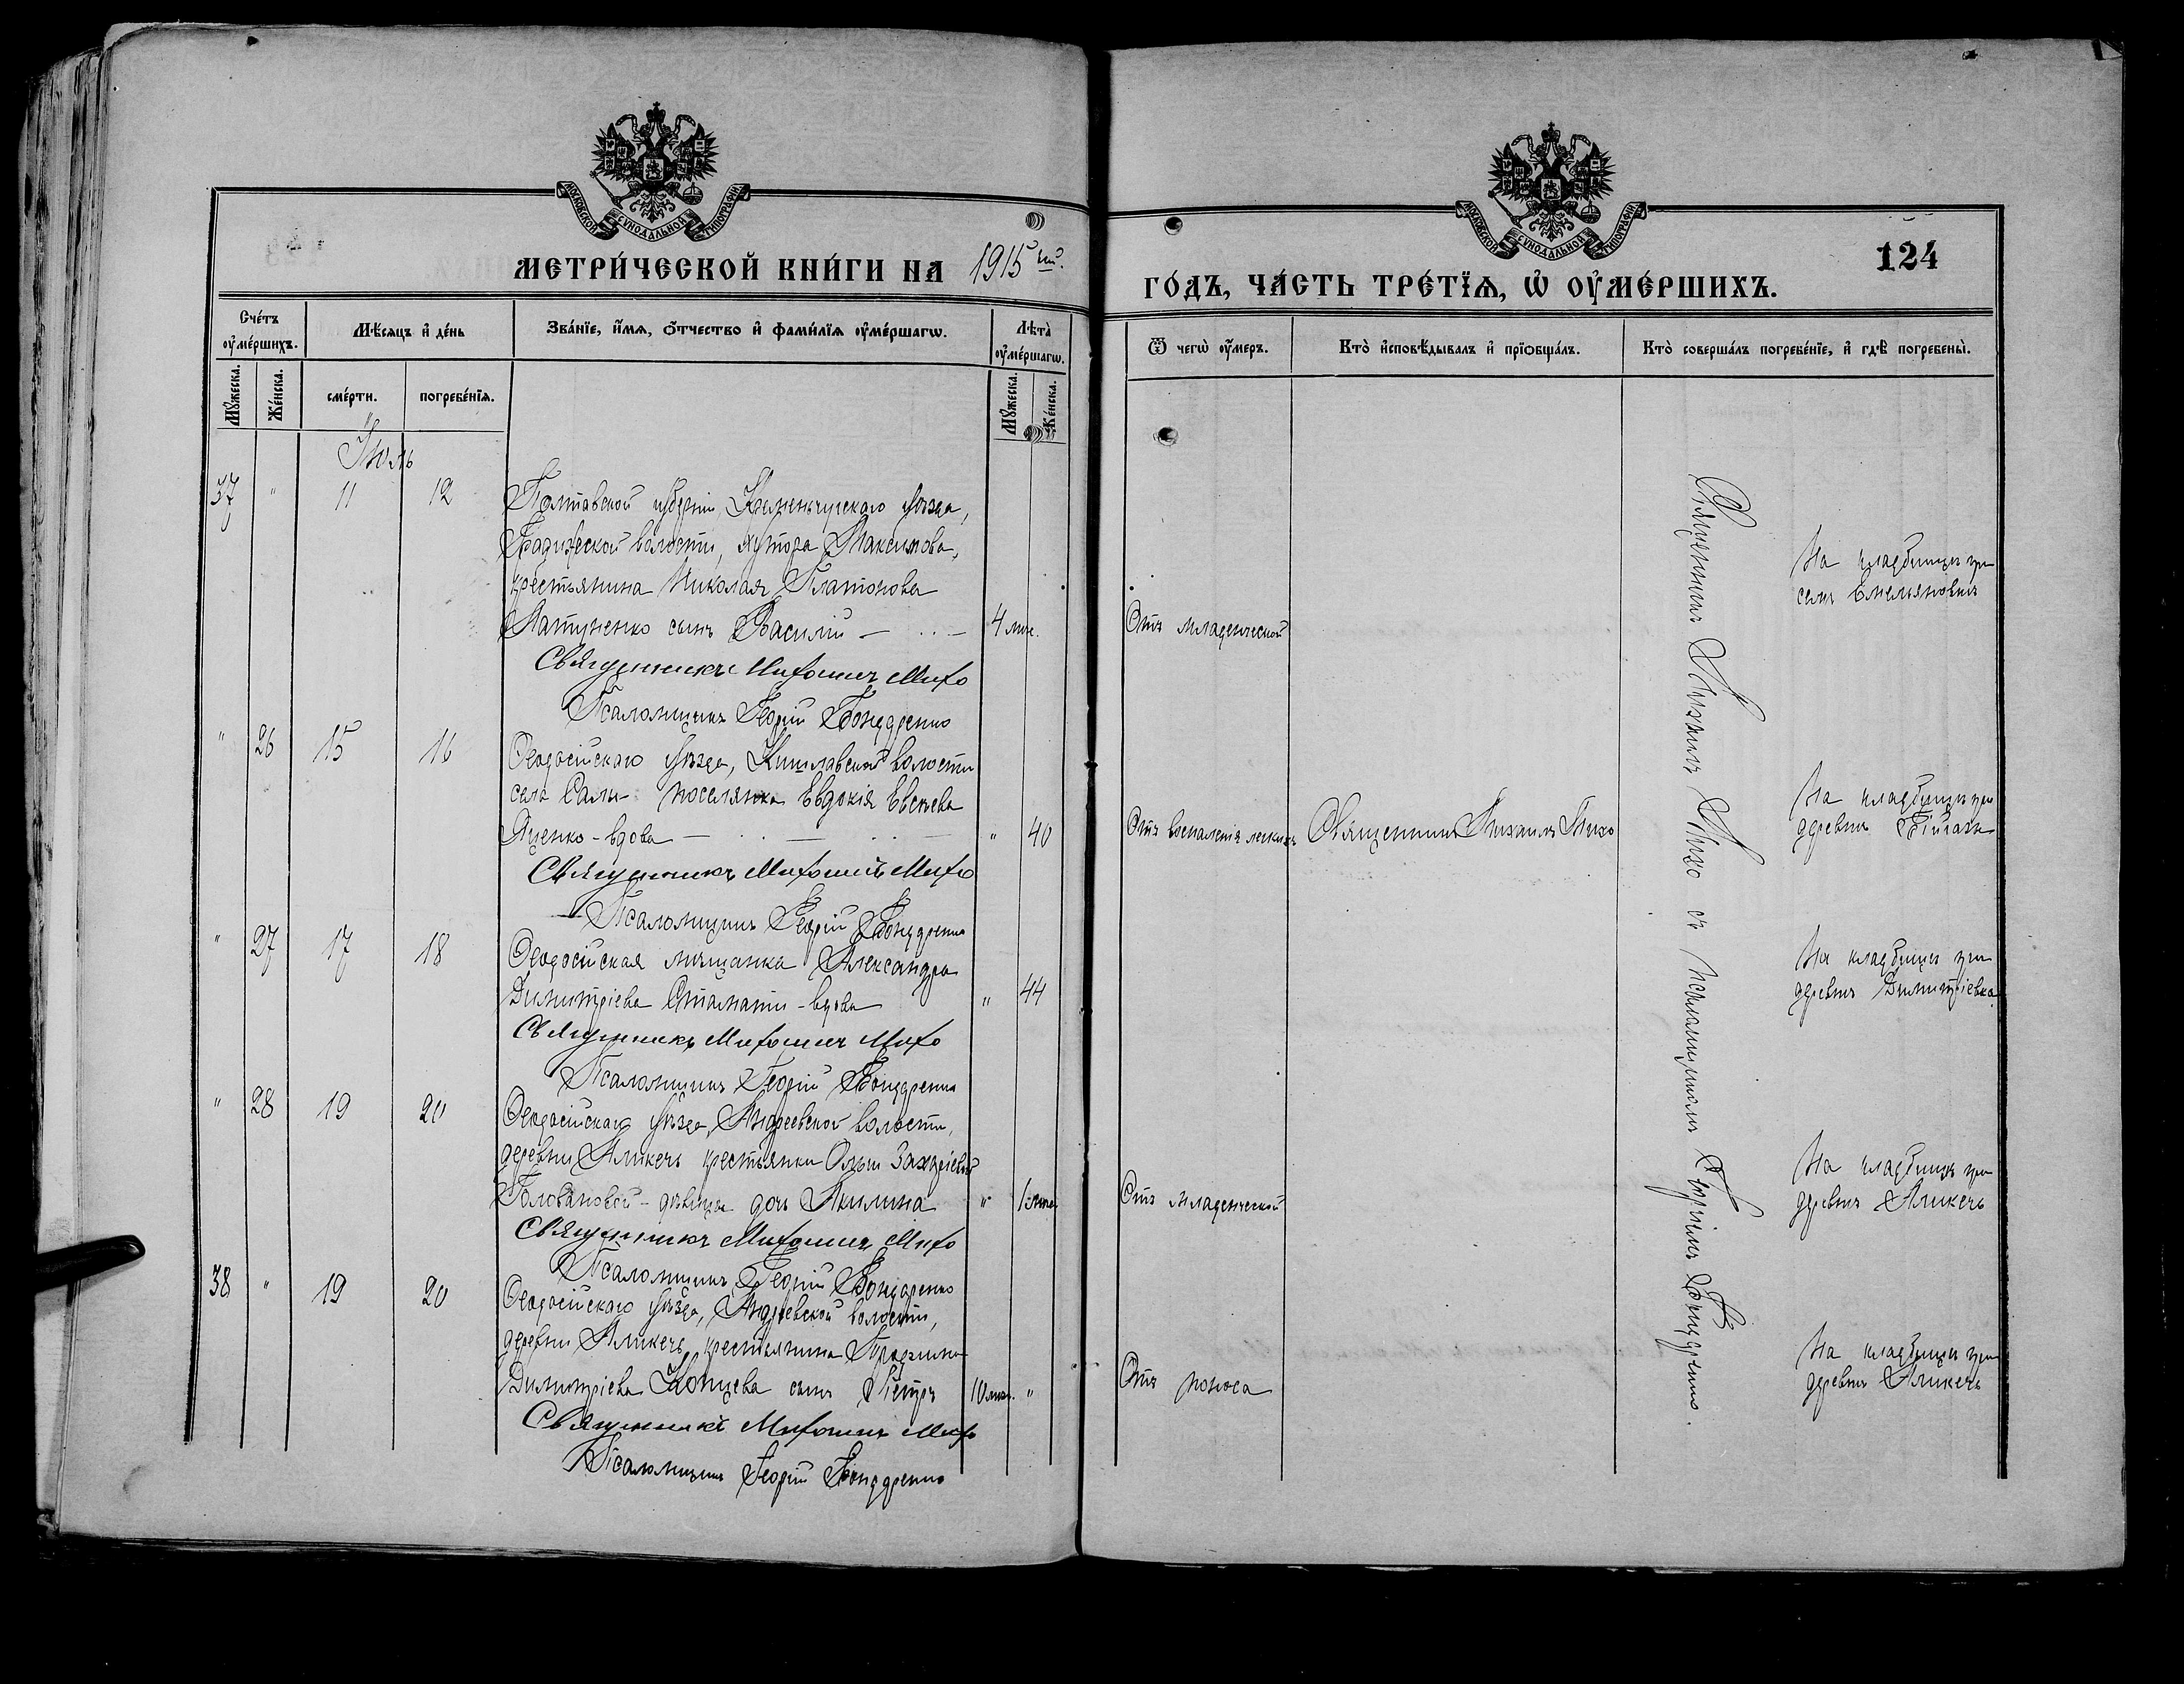 МОСКОВСКОЙ СУНОДАЛЬНОЙ ТИПОГРАФИИ
МЕТРИ́ЧЕСКОЙ КНИ́ГИ НА 1915 ый.
Сче́тъ ᲂу҆ме́ршихъ.
Мѣ́сяцъ и҆ де́нь
Зва́нїе, и҆́мя, ѻ҆́тчество и҆ фами́лїя ᲂу҆ме́ршагѡ.
Лѣта̀ ᲂу҆ме́ршагѡ.
Мꙋ́жеска.
Же́нска.
сме́рти.
погребе́нїя.
Мꙋ́жеска.
Же́нска.
Іюль
37 " 11 12 Полтавской губерніи, Кременчугскаго уѣзда,
Градижской волости, хутора Максимова,
крестьянина Николая Платонова
сынъ Василій — 4 мѣс.
Священникъ Михаилъ Михо
Псаломщикъ Георгій Бондаренко
" 26 15 16 Ѳеодосійскаго уѣзда, Кишлавской волости
села Салы поселянка Евдокія Евсѣева
Яценко - вдова — " 40
Священникъ Михаилъ Михо
Псаломщикъ Георгій Бондаренко
" 27 17 18 Ѳеодосійская мѣщанка Александра
Димитріева Стамати - вдова " 44
Священникъ Михаилъ Михо
Псаломщикъ Георгій Бондаренко
" 28 19 20 Ѳеодосійскаго уѣзда, Андреевской волости,
деревни Аликечъ крестьянки Ольги Захаріевой
Головановой - дѣвицы дочь Акилина " 1 мѣс.
Священникъ Михаилъ Михо
Псаломщикъ Георгій Бондаренко
38 " 19 20 Ѳеодосійскаго уѣзда, Андреевской волости,
деревни Аликечъ, крестьянина
Димитріева сынъ Петръ 10 мѣс. "
Священникъ Михаилъ Михо
Псаломщикъ Георгій Бондаренко
МОСКОВСКОЙ СУНОДАЛЬНОЙ ТИПОГРАФИИ
124
ГО́ДЪ, ЧА́СТЬ ТРЕ́ТЇѦ, Ѡ҆ ОУ҆МЕ́РШИХЪ.
Ѿ чегѡ̀ ᲂу҆́меръ.
Кто̀ и҆сповѣ́дывалъ и҆ прїѡбща́лъ.
Кто̀ соверша́лъ погребе́нїе, и҆ гдѣ̀ погребены̀.
Отъ младенческой
На кладбищѣ при
селѣ Емельяновкѣ
Отъ воспаленія легкихъ
Священникъ Михаилъ Михо
На кладбищѣ при
деревнѣ
На кладбищѣ при
деревнѣ Димитріевка
Отъ младенческой
На кладбищѣ при
деревнѣ Аликечъ
Отъ поноса
На кладбищѣ при
деревнѣ Аликечъ
Священникъ Михаилъ Михо съ псаломщикомъ Георгіемъ Бондаренко.